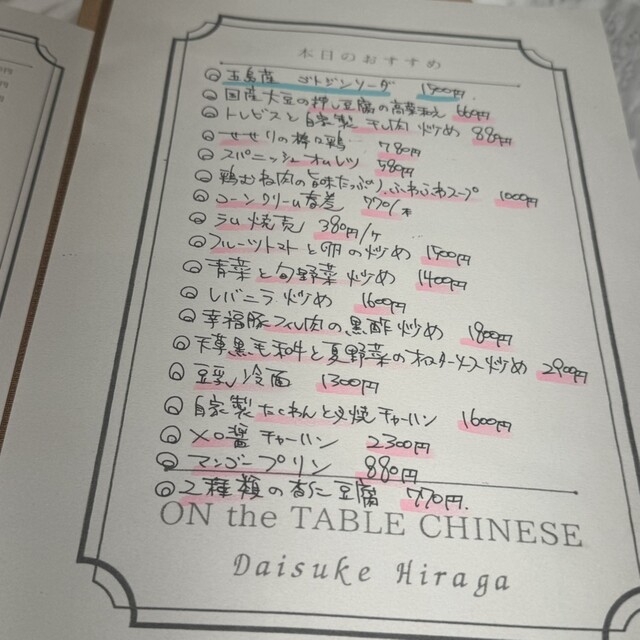 本日のおすすめ
五島産 ゴトジンソーダ 1500円.
国産大豆の押し豆腐の高菜和え 660円
トレビスと自家製干し肉炒め 880円
せせりの 780円
スパニッシュオムレツ 580円
鶏むね肉の旨味たっぷりふわふわスープ 1000円
コーンクリーム春巻 770/本
ラム焼売 380円/ヶ
フルーツトマトと卵の炒め 1500円
青菜と旬野菜炒め 1400円
レバニラ炒め 1600円
幸福豚フィレ肉の黒酢炒め 1800円
天草黒毛和牛と夏野菜のオイスターソース炒め 2900円
豆乳冷面 1300円
自家製たくあんと叉焼チャーハン 1600円
XO醤チャーハン 2300円
マンゴープリン 880円
2種類の杏仁豆腐 770円.
ON the TABLE CHINESE
Daisuke Hiraga